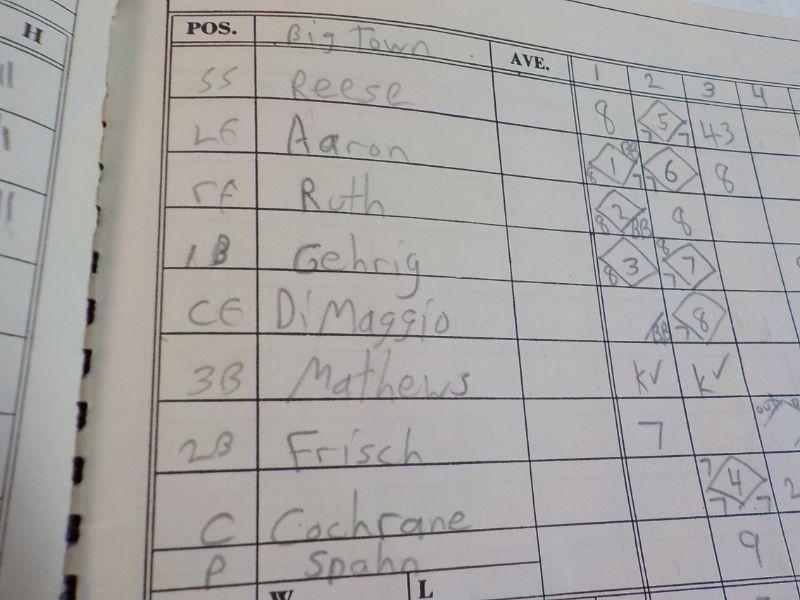 H
POS. Big Town AVE. 1 2 3 4
SS Reese 8 5 7 7 43
LF Aaron 1 BB 8 6 7 7 8
rF Ruth 2 8 BB 8
1B Gehrig 3 8 7 8 7
CF DiMaggio BB 8 7
3B Mathews K✓ K✓
2B Frisch 7
C Cochrane 7 4 7 7 2
P Spahn 9
W L